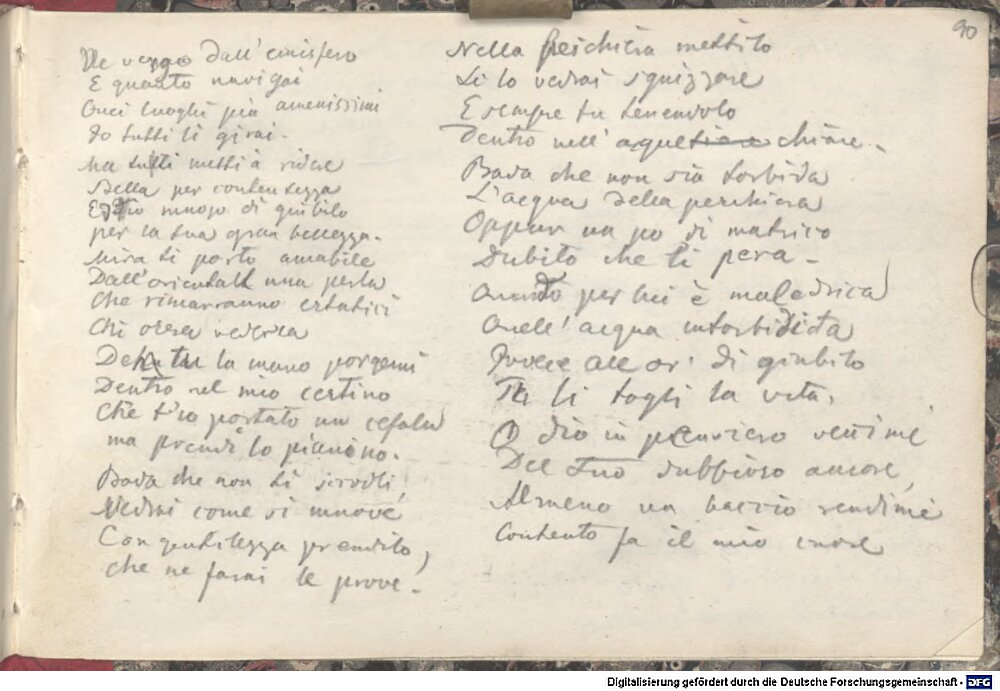 90
Ne vengo dall'emisfero
E quanto navigai
Quei luoghi più amenissimi
Io tutti li girai.
ma tutti metti à ridere
Bella per contentezza
Ed io muojo di giubilo
per la tua gran bellezza.
Mira ti porto amabile
Dall'oriental una perla
Che rimarranno estatici
Chi osera vederla
Deh tu la mano porgemi
Dentro nel mio cestino
Chè t'ho portato un cefalo
ma prendilo pianino.
Bada che non ti scivoli,
Vedrai come si muove
Con gentilezza prendilo,
che ne farai le prove.
Nella peschiera mettilo
Li lo vedrai sguizzare
E sempre tu tenendolo
Dentro nell' acque chiare.
Bada che non sia torbida
L'acqua della peschiera
Oppur un po di matrico
Dubito che ti pera.
Quando per lui è maledrica
Quell' acqua intorbidita
Invece all or' di giubilo
Tu li togli la vita.
O dio in pensiero vennemi
Del tuo dubbioso amore,
Almeno un baccio rendimi
Contento fa il mio cuore
Digitalisierung gefördert durch die Deutsche Forschungsgemeinschaft - DFG